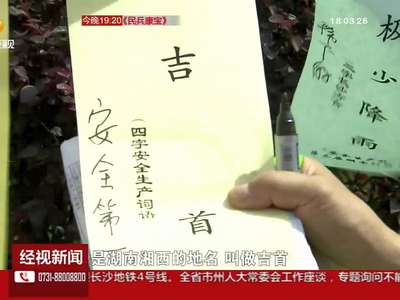 今晚19:20《民兵康宝》
18:03:26
吉
首
(四字安全生产词语
安全第一
极
少
降
雨
是湖南湘西的地名 叫做吉首
经视新闻
0731-88008800
长沙地铁4号线。全省市州人大常委会工作座谈，专题询问不能